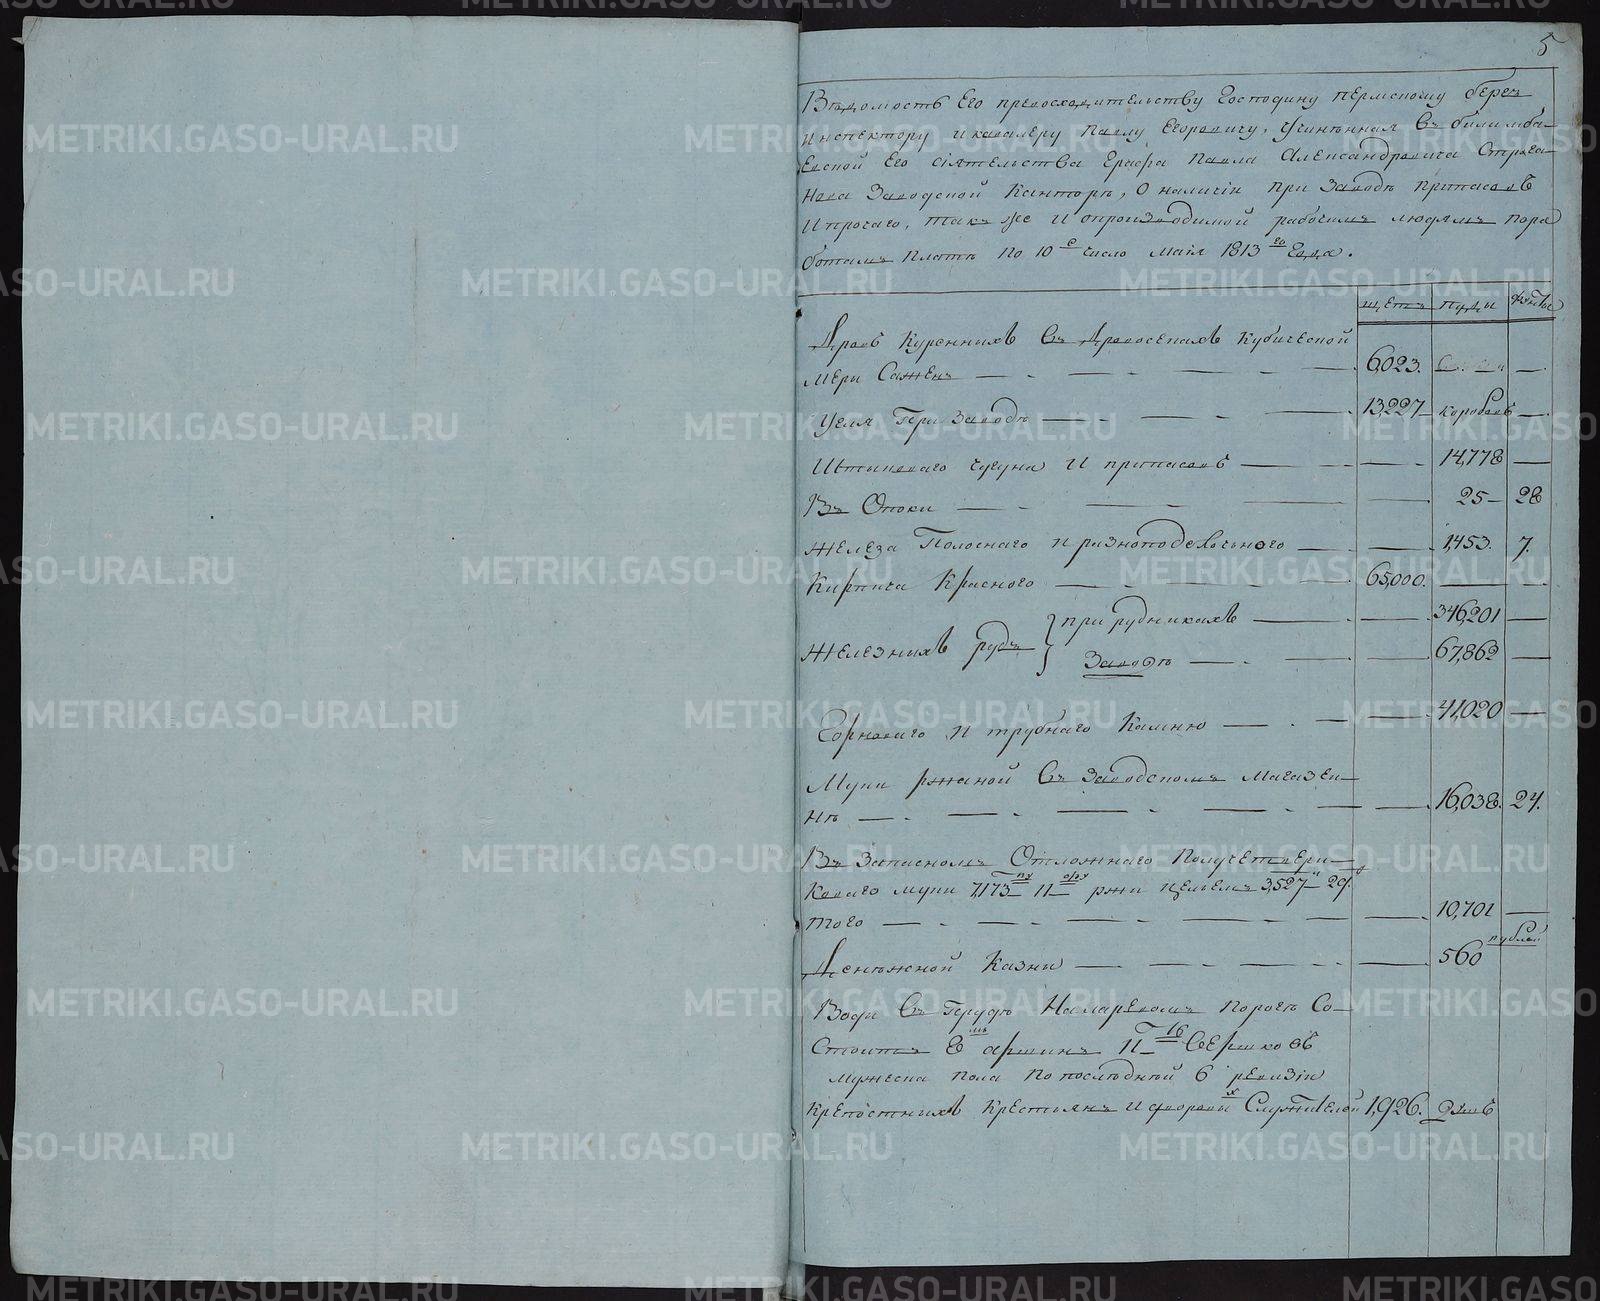 5
Ведомость Его превосходительству Господину пермскому берг
инспектору и кавалеру Павлу Егоровичу, Учиненная Въ билимба-
евской Его сиятельства Графа Павла Александровича Строга-
нова Заводской Канторѣ, О наличіи при Заводѣ припасовъ
и прочаго, такъ же и опроизводимой рабочимъ людямъ пора
ботамъ платѣ по 10е число маiя 1813го Года.
щетъ пуды фунты
Дровъ Куренныхъ Въ Дровосекахъ Кубической
мѣры Саженъ 6,023.
Уголя При Заводѣ 13,227 коробовъ
Штыковаго чугуна И припасовъ 14,778
Въ Опоки 25 28
Железа Полоснаго и разноподельнаго 1,453. 7.
Кирпича Краснаго 65,000.
Железныхъ рудъ } при рудникахъ 346,201
Заводѣ 67,862
Горноваго И трубнаго Камню 41,020
Муки ржаной Въ Заводскомъ Магазеи-
нѣ 16,038. 24.
Въ Запасномъ Отложнаго Получетвери-
коваго муки 7,173 пу 11 фу ржи целемъ 3,527 29.
того 10,701
Денѣжной Казны 560 рублей
Воды Въ Пруду На ларевомъ порогѣ Со-
стоитъ 8мь аршинъ 11 16 Вершковъ
мужеска пола по последнѣй 6 ревизіи
крепостныхъ крестьянъ и дворовых Служителей 1,926. душъ
METRIKI.GASO-URAL.RU